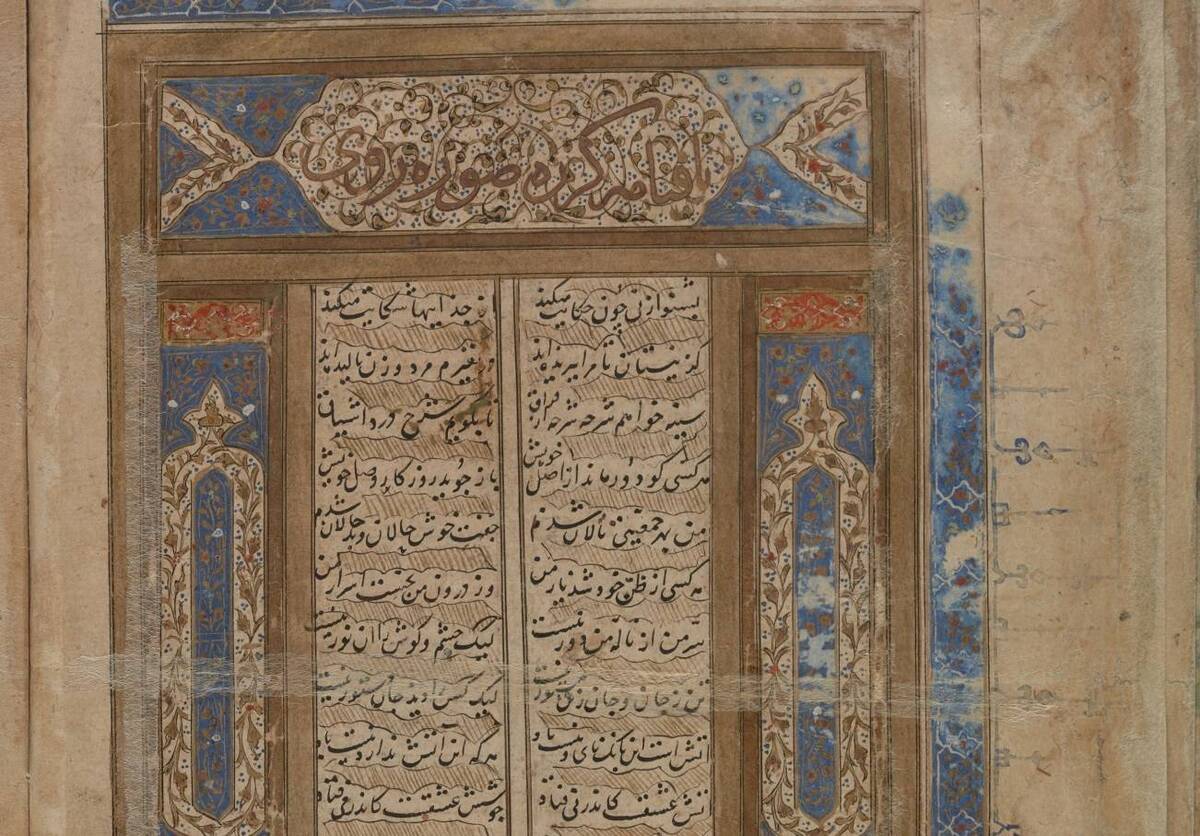 بشنو از نی چون حکایت میکند از جداییها شکایت میکند
کز نیستان تا مرا ببریده اند نفیرم مرد و زن نالیده اند
سینه خواهم شرحه شرحه از فراق تا بگویم شرح درد اشتیاق
هر کسی کو دور ماند از اصل خویش باز جوید روزگار وصل خویش
من بهر جمعیتی نالان شدم جفت خوش حالان و بدحالان شدم
هر کسی از ظنّ خود شد یار من وز درون من نجست اسرار من
سرّ من از ناله من دور نیست لیک چشم و گوش را آن نور نیست
تن ز جان و جان ز تن مستور نیست لیک کس را دید جان دستور نیست
آتش است این بانگ نای و نیست باد هرکه این آتش ندارد نیست باد
آتش عشقست کاندر نی فتاد جوشش عشقست کاندر می فتاد